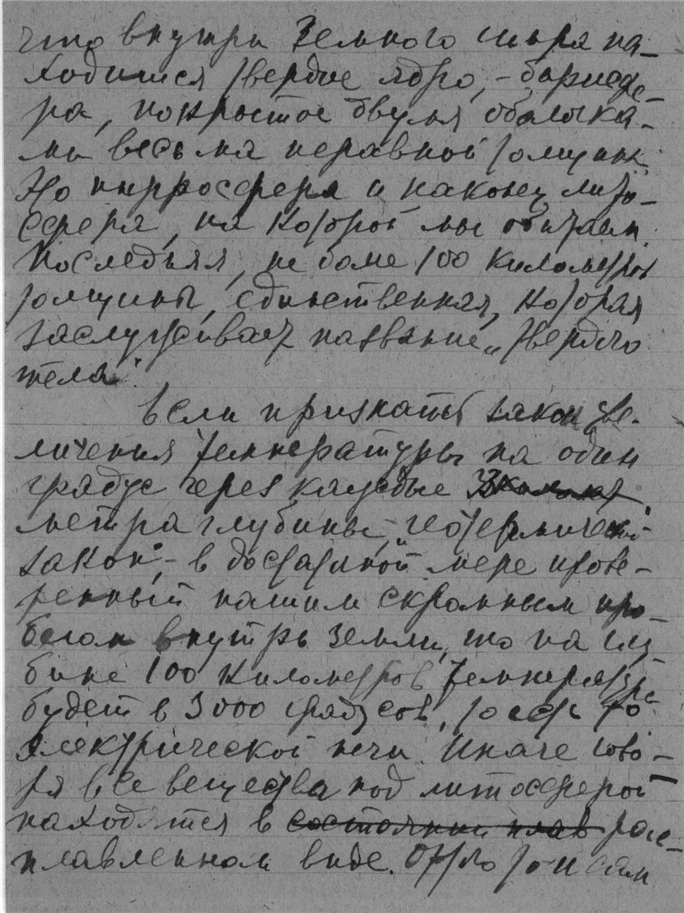 что внутри Земного шара на-
ходится твердое ядро, - барисфе-
ра, покрытое двумя оболочка-
ми весьма неравной толщины.
Это пирросфера и наконец лито-
сфера, на которой мы обитаем.
Последняя, не более 100 километров
толщины, единственная, которая
заслуживает название „твердого
тела".
Если признать закон уве-
личения температуры на один
градус через каждые 33
метра глубины, - „геотермический
закон", - в достаточной мере прове-
ренный нашим скромным про-
бегом внутрь земли, то на глу-
бине 100 километров температура
будет в 3000 градусов, то есть то
электрической печи. Иначе гово-
ря все вещества под литосферой
находятся в состоянии плав рас-
плавленном виде. Этого то и сам